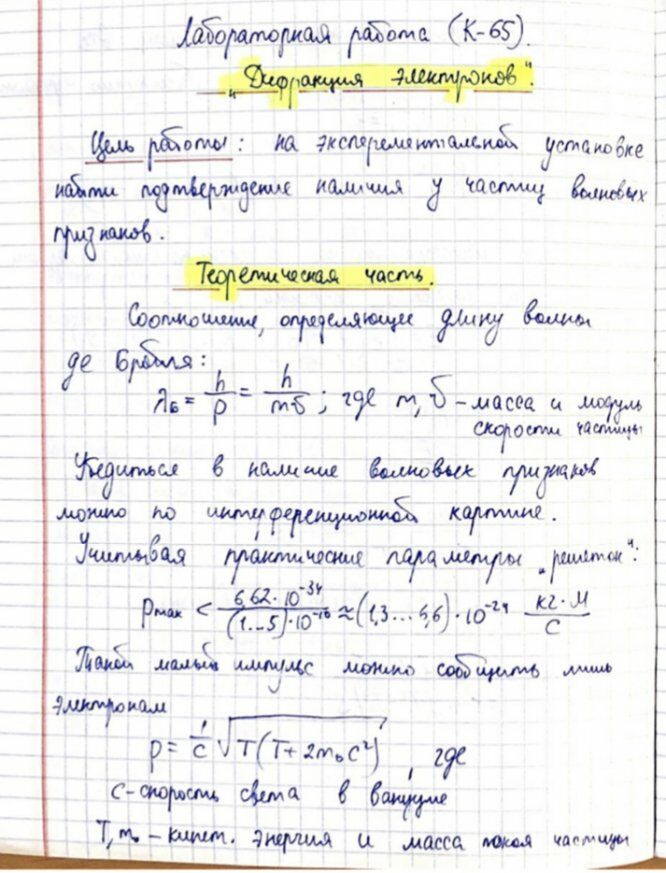 Лабораторная работа (К-65).
"Дифракция электронов".
Цель работы: на эксперементальной установке
найти подтверждение наличия у частиц волновых
признаков.
Теоретическая часть.
Соотношение, определяющее длину волны
де Бройля:
λБ = h/p = h/mv; где m, v – масса и модуль
скорости частицы
Убедиться в наличие волновых признаков
можно по интерференционной картине.
Учитывая практические параметры "решеток":
pмах < 6,62·10⁻³⁴/(1...5)·10⁻¹⁰ ≈ (1,3...6,6)·10⁻²⁴ кг·м/с
Такой малый импульс можно сообщить лишь
электронам
p = 1/c √T(T+2m₀c²), где
c – скорость света в вакууме
T, m₀ – кинет. энергия и масса покоя частицы